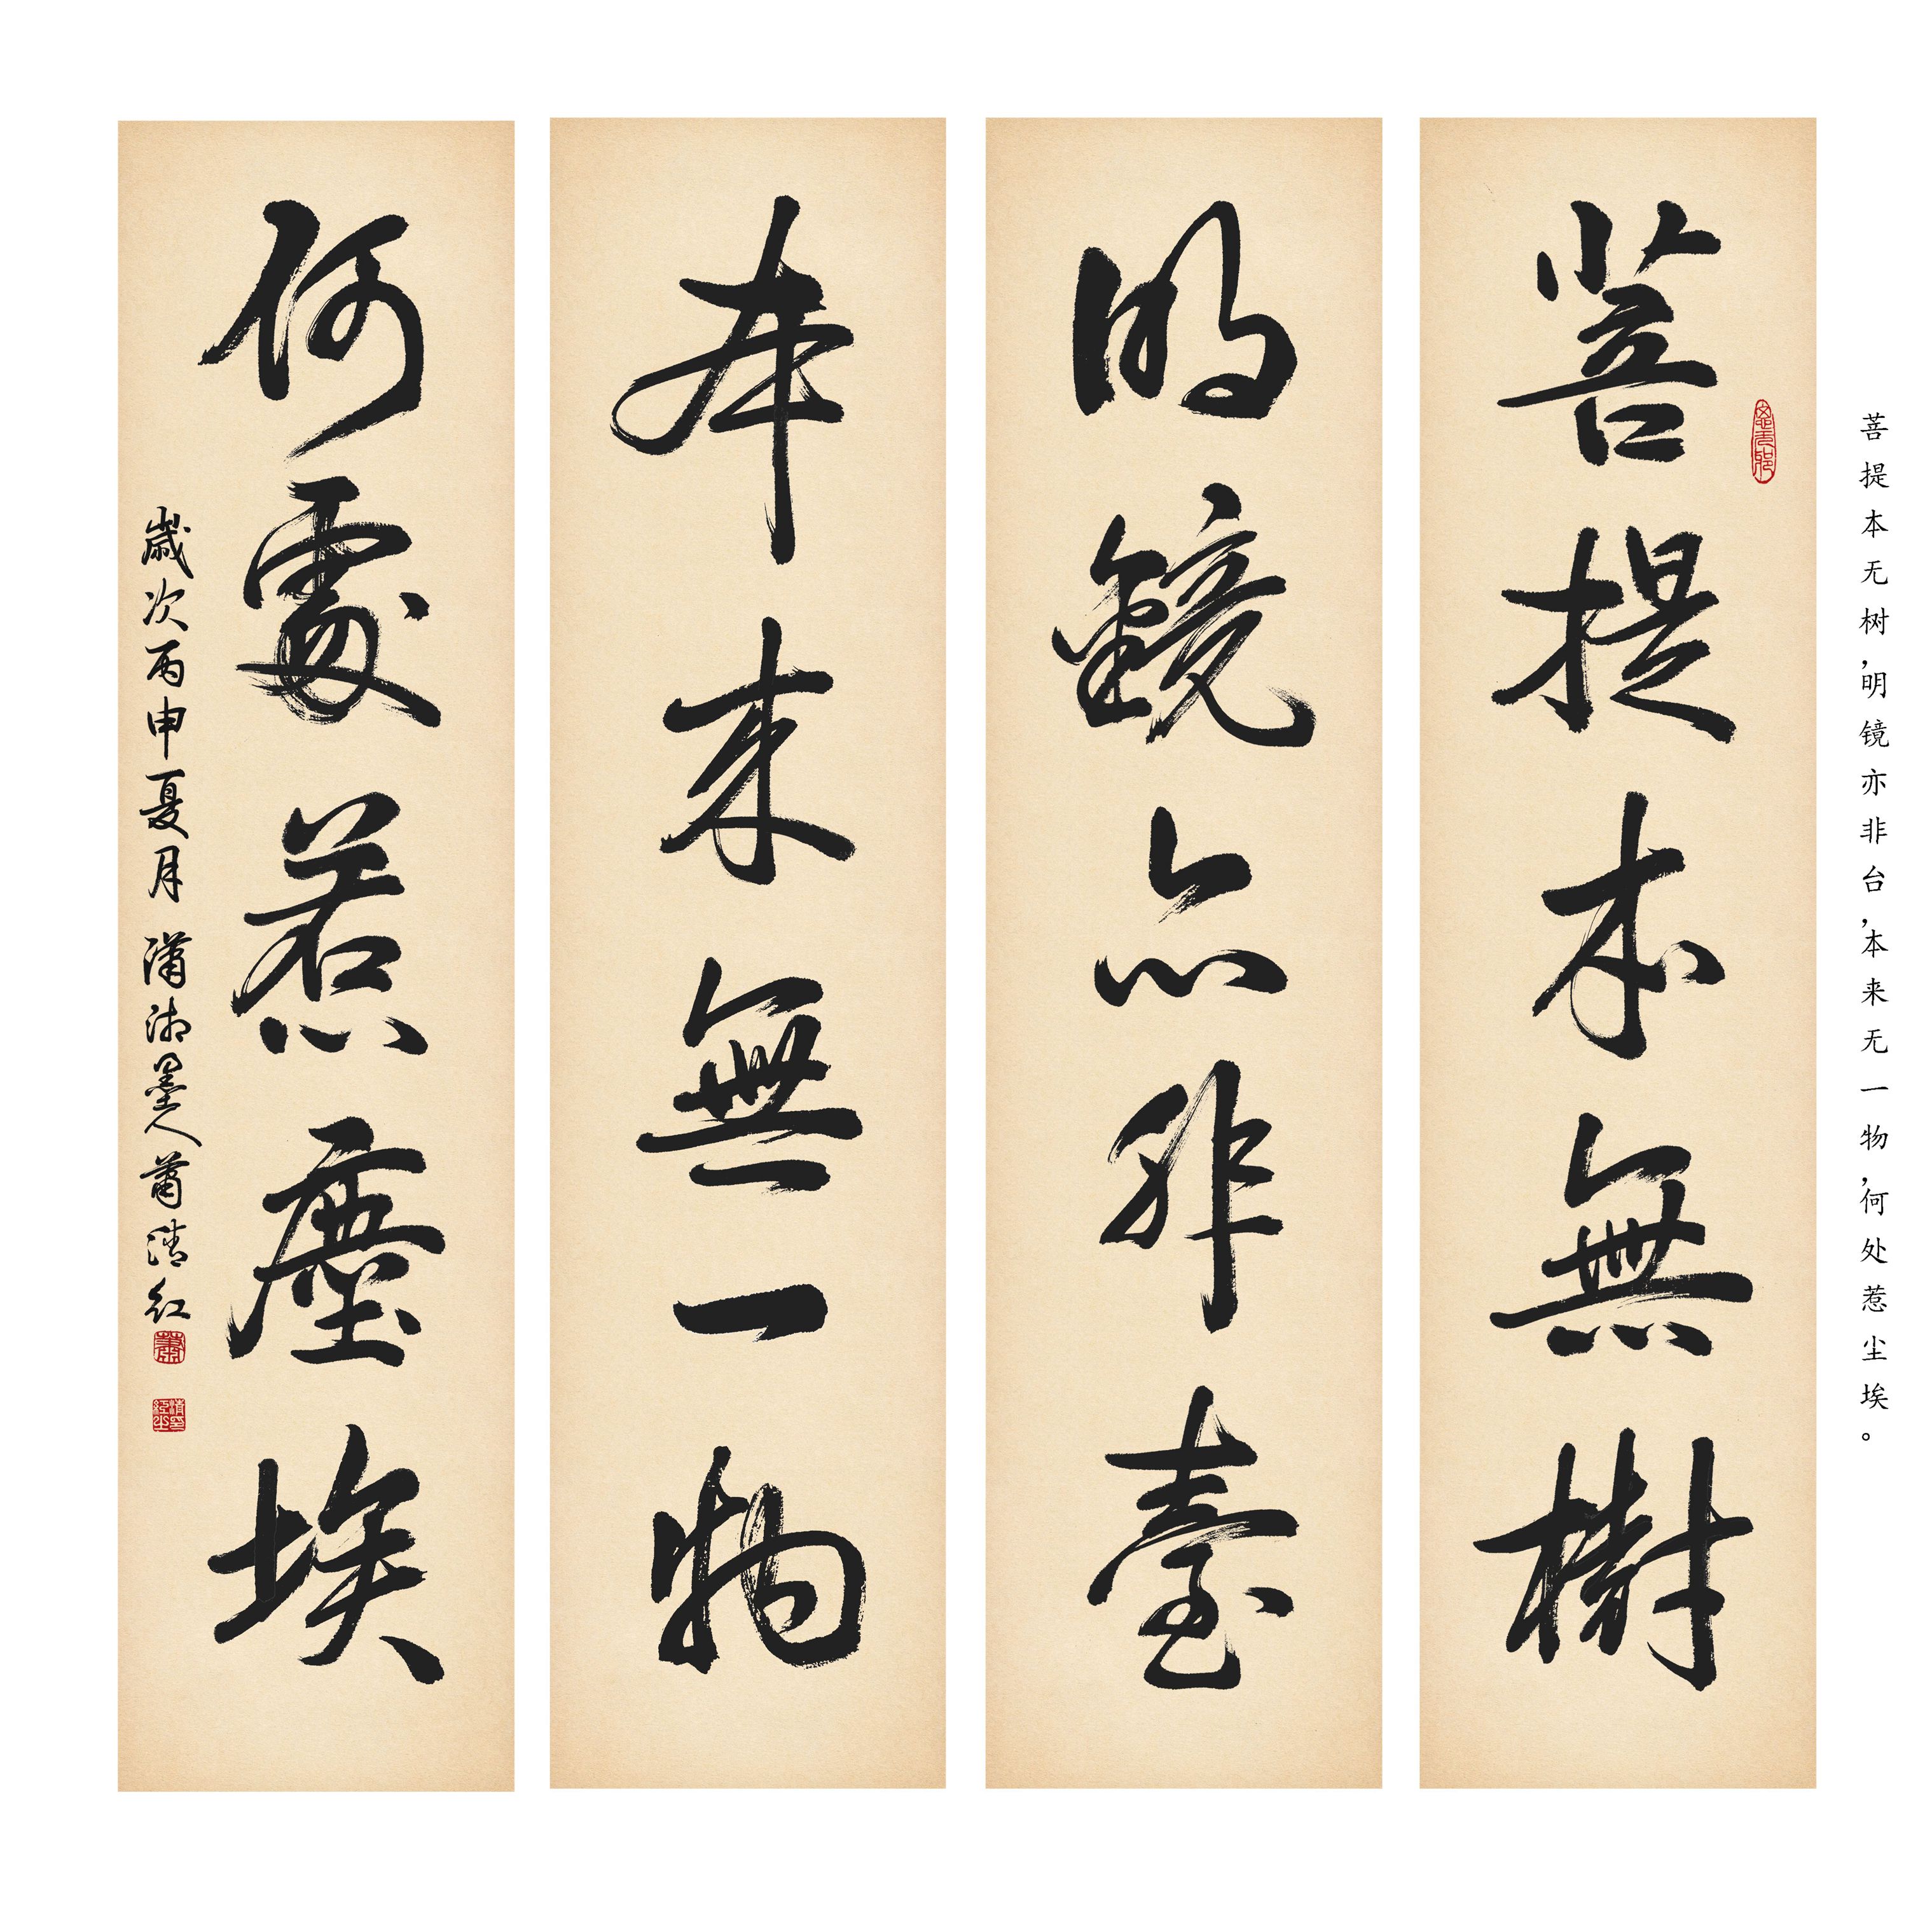 菩提本无树,明镜亦非台,本来无一物,何处惹尘埃。
菩提本無樹
明鏡亦非臺
本来無一物
何處惹塵埃
歲次丙申夏月 潇湘墨人萧清红